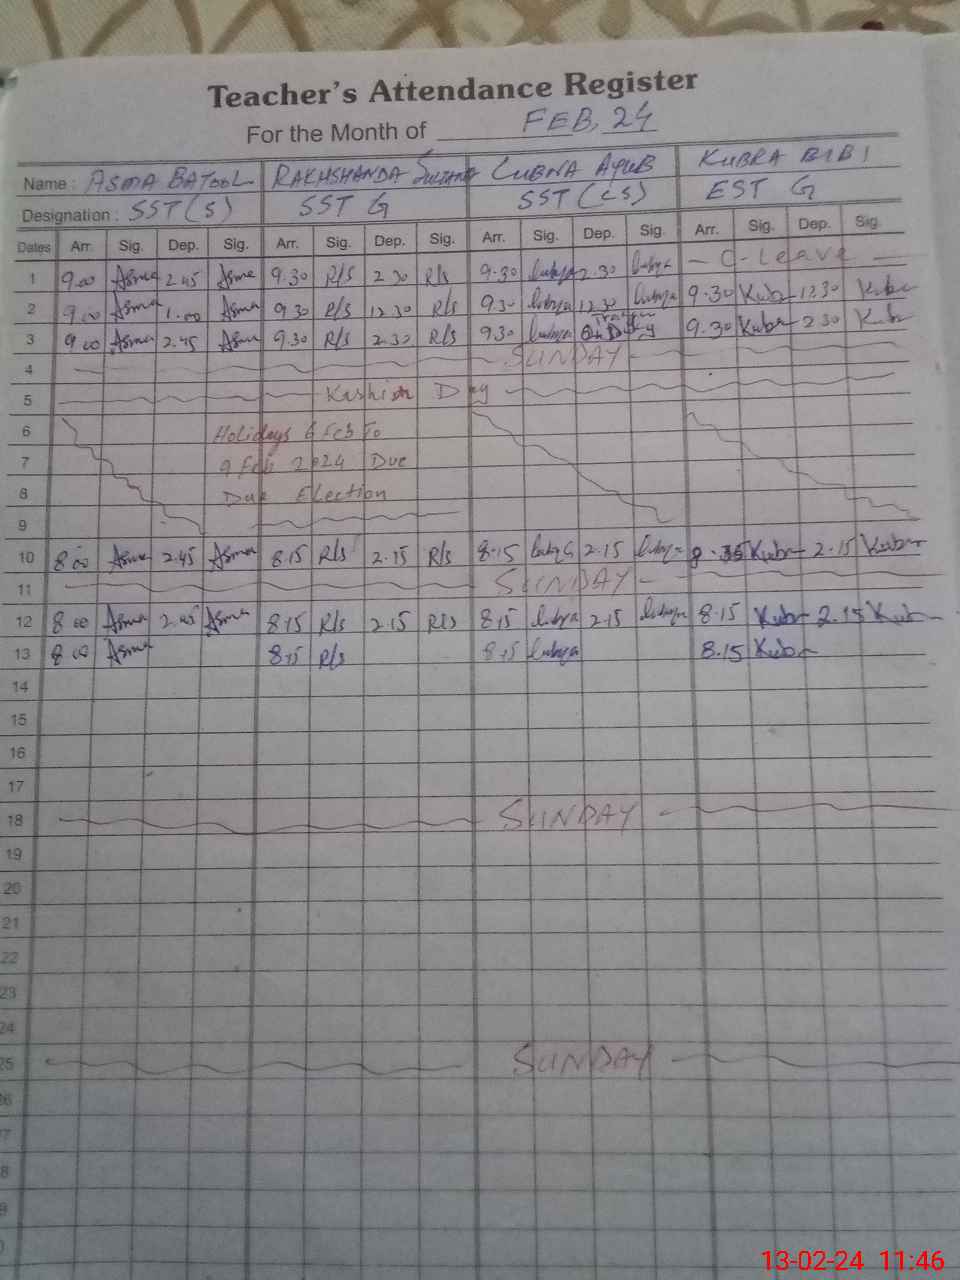 Teacher's Attendance Register
For the Month of FEB, 24
Name : ASMA BATOOL RAKHSHANDA SULTANA LUBNA AYUB KUBRA BIBI
Designation : SST (S) SST G SST (CS) EST G
Dates Arr. Sig. Dep. Sig. Arr. Sig. Dep. Sig. Arr. Sig. Dep. Sig. Arr. Sig. Dep. Sig.
1 9.00 Asma 2.45 Asma 9.30 R/s 2.30 R/s 9.30 2.30 - C-Leave -
2 9.00 Asma 1.00 Asma 9.30 R/s 12.30 R/s 9.30 12.30 9.30 Kubr 12.30 Kubr
3 9.00 Asma 2.45 Asma 9.30 R/s 2.30 R/s 9.30 On Duty 9.30 Kubr 2.30 Kubr
4 SUNDAY
5 Day
6 Holidays 6 Feb To
7 9 Feb 2024 Due
8 Due Election
9
10 8.00 Asma 2.45 Asma 8.15 R/s 2.15 R/s 8.15 2.15 Kubr 2.15 Kubr
11 SUNDAY -
12 8.00 Asma 2.45 Asma 8.15 R/s 2.15 R/s 8.15 2.15 8.15 Kubr 2.15 Kubr
13 8.00 Asma 8.15 R/s 8.15 8.15 Kubr
14
15
16
17
18 SUNDAY -
19
20
21
22
23
24
25 SUNDAY
26
27
28
29
13-02-24 11:46